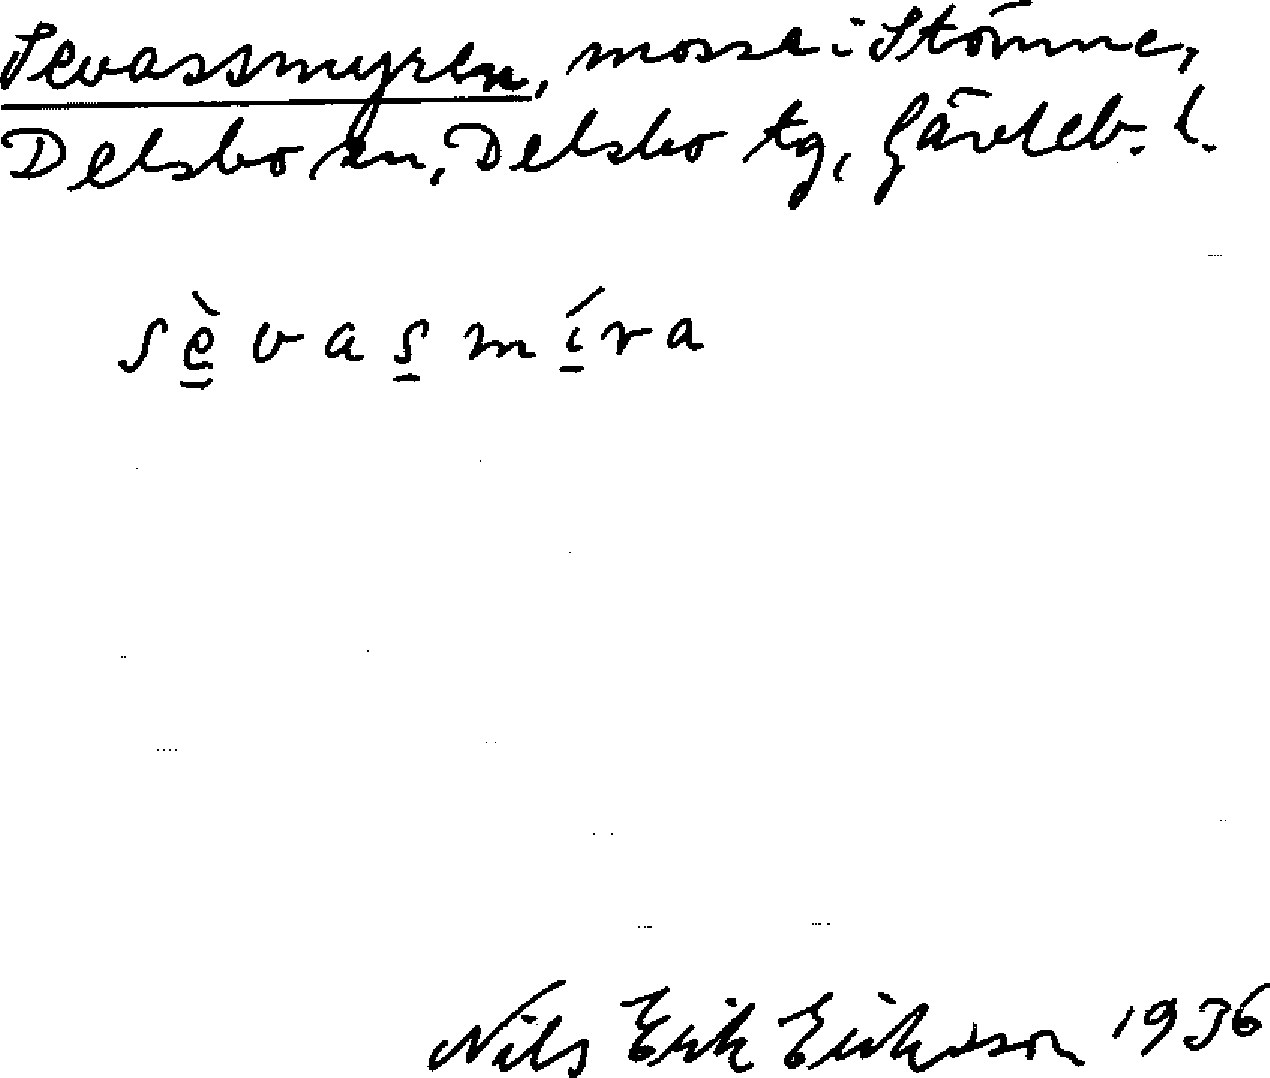 Sevassmyren, mosse i Stömne,
Delsbo sn, Delsbo tg, Gävleb. l.
s è̳ v a s̲ m í̲ r a
Nils Erik Eriksson 1936